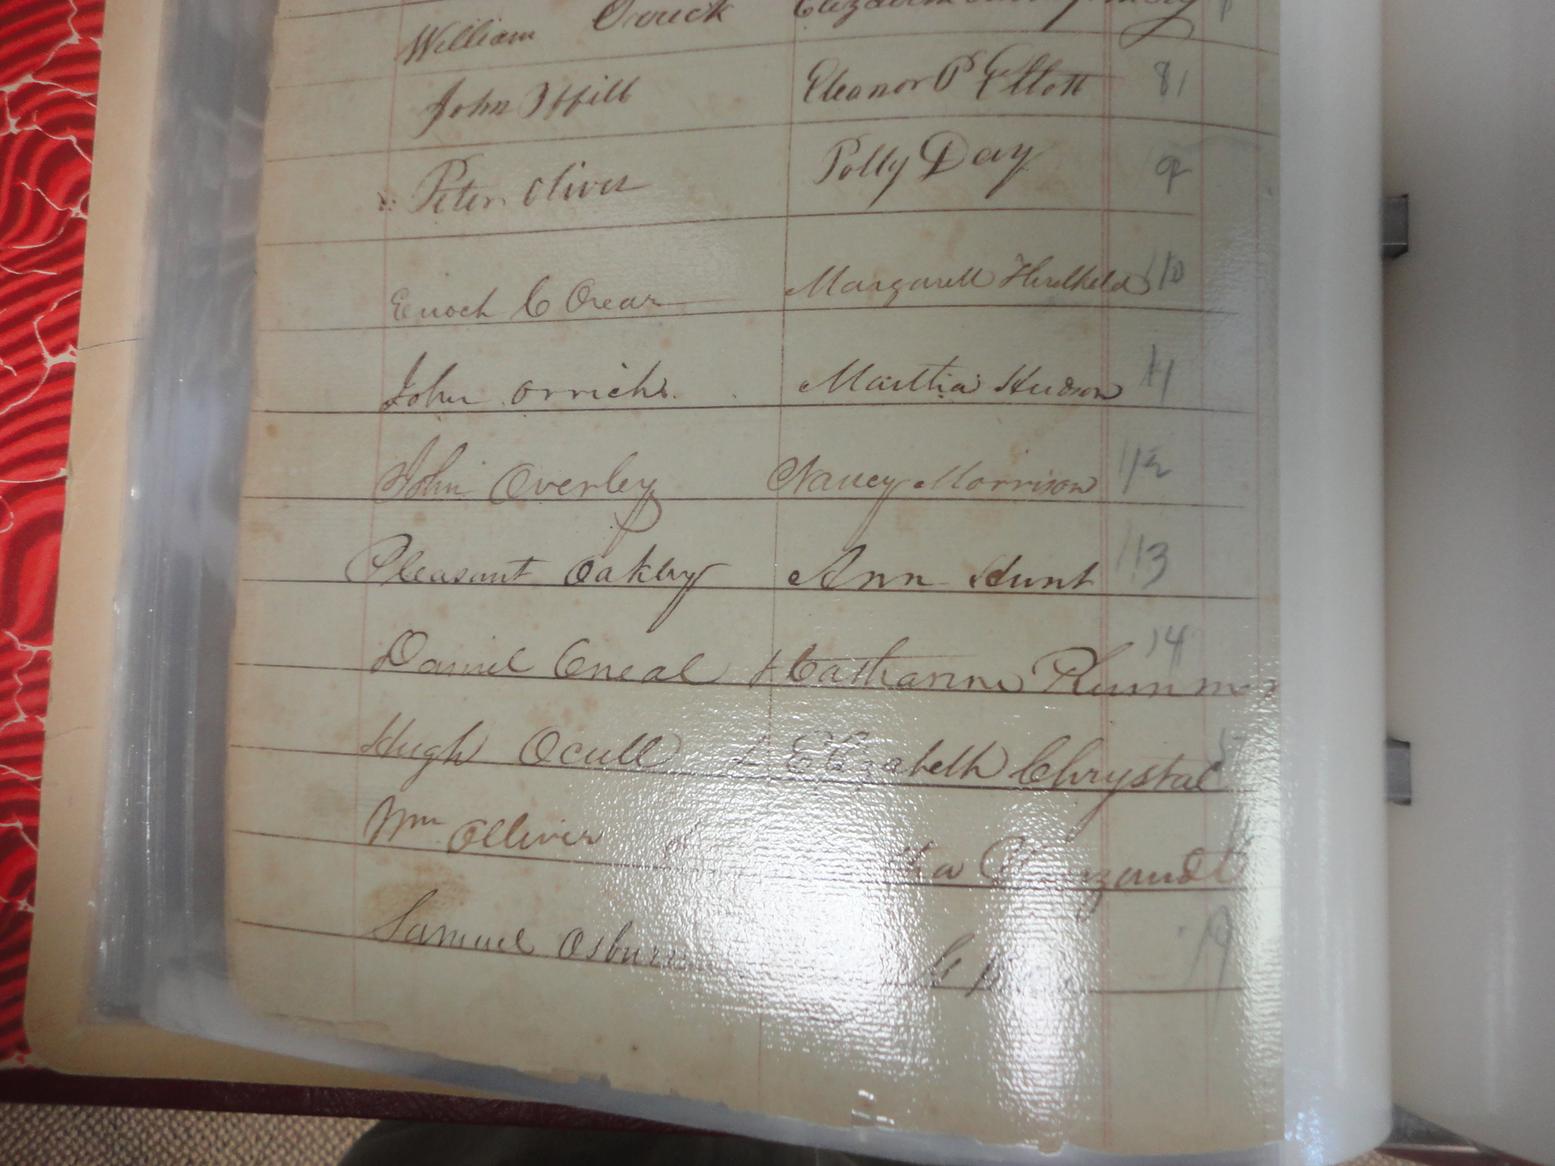 William Orrick Elizabeth
John Offill Eleanor P Ellott 81
Peter Oliver Polly Day 9
Enoch C Orear Margarett Hirdheld 110
John Orrick Martha Hudson 11
John Overley Nancy Morrison 112
Pleasant Oakley Ann Hunt 113
Daniel Oneal & Catharine Plummer 14
Hugh Ocull & Elizabeth Chrystal
Wm Olliver &
Samuel Osburn